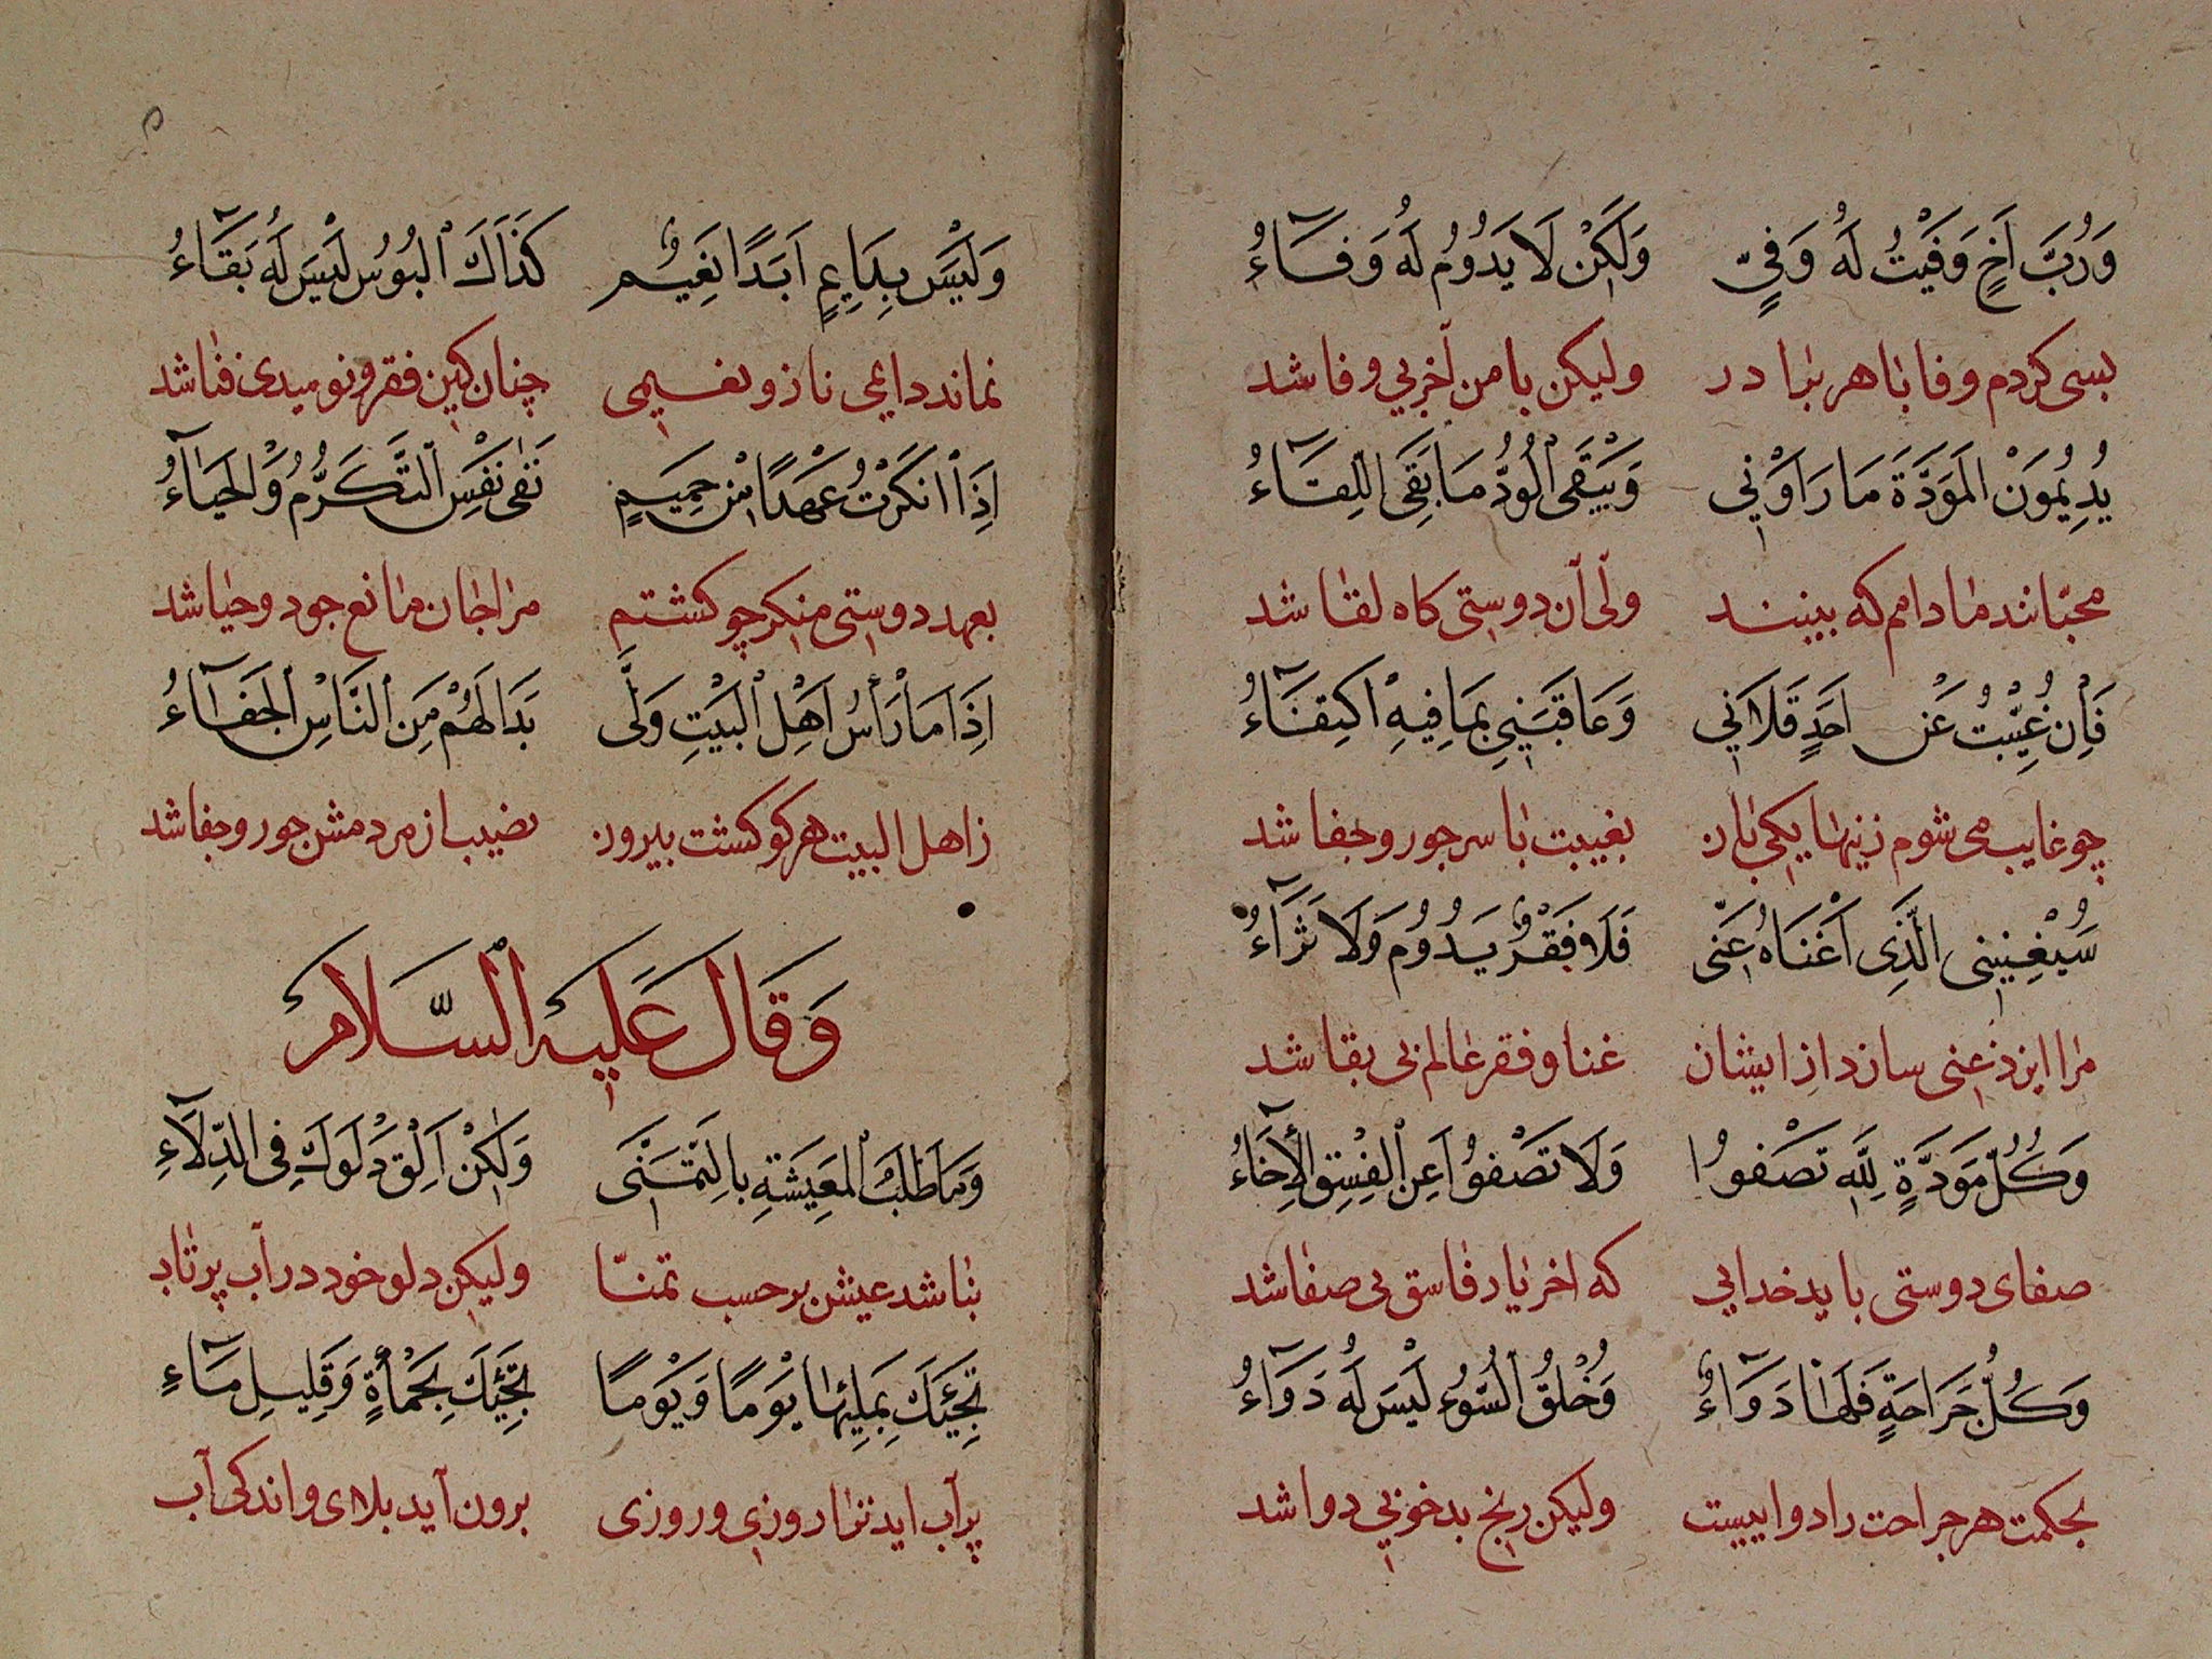 وَرُبَّ اَخٍ وَفَيْتُ لَهُ وَفِيٍّ وَلَكِنْ لَا يَدُوُمُ لَهُ وَفَآءُ
بسی کردم وفا با هر برادر ولیکن با من آخر بی وفا شد
يُدِيُمُوَنْ الْمَوَدَّةَ مَا رَاَوْنِي وَيَبْقَى الْوُدُّ مَا بَقِيَ اللِقَآءُ
محبّانند مادامم که بینند ولی آن دوستی کاه لقا شد
فَاِنْ غُيِّبْتُ عَنْ اَحَدٍ قَلَانِي وَعَاقَبَنِي بِمَا فِيهِ اكْتِفَآءُ
چو غایب می شوم زینها یکی بان بغیبت با سر جور و جفا شد
سَيُغْنِينِى الَّذِى اَغْنَاهُ عَنِّى فَلَا فَقْرٌ يَدُوُمُ وَلَا ثَرَآءُ
مرا ایزد غنی سازد از ایشان غنا و فقر عالم بی بقا شد
وَكُلُّ مَوَدَّةٍ لِلَّهِ تَصْفُوُا وَلَا تَصْفُوُا عَنِ الْفِسْقِ الْأِخَآءُ
صفای دوستی باید خدایی که اخر یار فاسق بی صفا شد
وَكُلُّ جَرَاحَةٍ فَلَهَا دَوَآءٌ وَخُلْقُ السُّوُءِ لَيْسَ لَهُ دَوَآءُ
بحکمت هر جراحت را دواییست ولیکن رنج بدخو بی دوا شد
وَلَيْسَ بِدَايِمٍ اَبَدًا نَعِيُمٌ كَذَاكَ الْبُوُسُ لَيْسَ لَهُ بَقَآءُ
نماند دایمی ناز و نعیمی چنان کین فقر و نومیدی فنا شد
اِذَا انْكَرْتُ عَهْدًا مِنْ حَمِيَمٍ نَفَى نَفْسِ التَّكَرُّمُ وَالْحَيَآءُ
بعهد دوستی منکر چو کشتم مرا جان مانع جود و حیا شد
اِذَا مَا رَأْسُ اَهْلِ الْبَيْتِ وَلَّى بَدَا لَهُمْ مِنَ النَّاسِ الْجَفَآءُ
ز اهل البیت هر کو کشت بیرون نصیب از مردمش جور و جفا شد
وَقَالَ عَلَيْهِ السَّلَامُ
وَمَا طَلَبُ الْمَعِيشَةِ بِالتَمَنِّى وَلَكِنْ اَلْقِ دَلْوَكَ فِى الدِّلَآءِ
نباشد عیش بر حسب تمنّا ولیکن دلو خود در آب پرتاب
تَجِئْكَ بِمِلِئِهَا يَوْمًا وَيَوْمًا تَجِئْكَ بِحَمْأَةٍ وَقَلِيلِ مَآءِ
پر آب اید ترا روزی و روزی برون آید بلای و اندکی آب